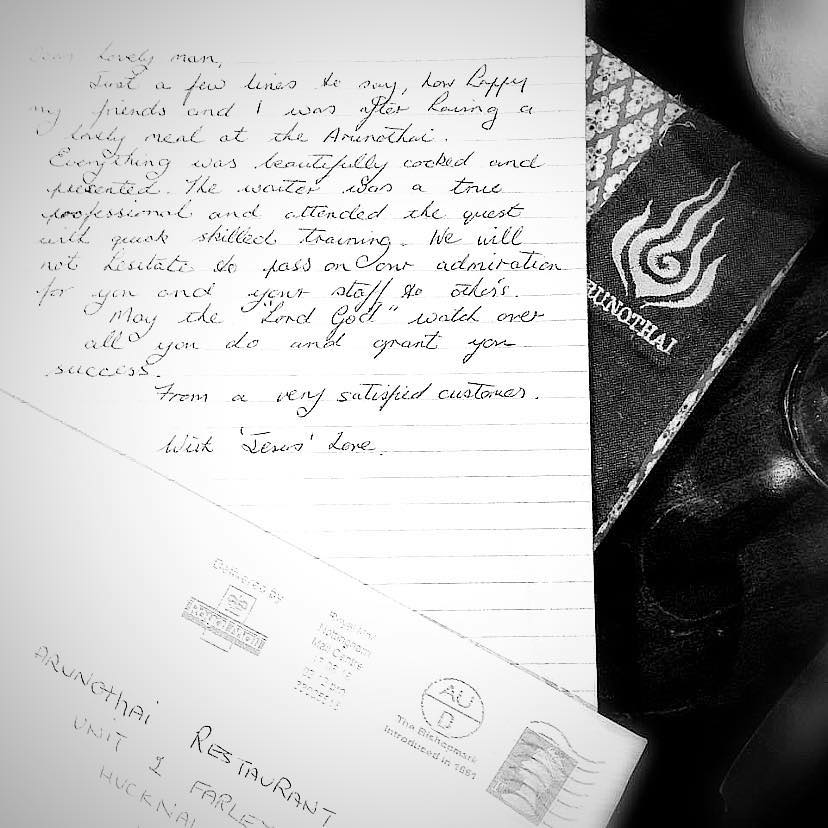 Dear Lovely man,
Just a few lines to say, how happy
my friends and I was after having a
lovely meal at the Arunothai.
Everything was beautifully cooked and
presented. The waiter was a true
professional and attended the quest
with quick skilled training. We will
not hesitate to pass on our admiration
for you and your staff to other's.
May the "Lord God" watch over
all you do and grant you
success.
From a very satisfied customer.
With 'Jesus' Love.
RUNOTHAI
Delivered by
Royal Mail
Royal Mail
Nottingham
Mail Centre
AU
D
The Bishopmark
Introduced in 1661
ARUNOTHAI RESTAURANT
UNIT 1 FARLE
HUCKNA